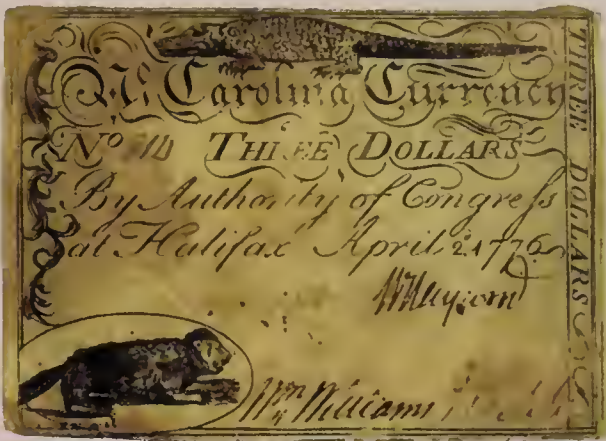 N. Carolina Currency
No THREE DOLLARS
By Authority of Congress
at Halifax April 2. 1776
Wm Williams
THREE DOLLARS